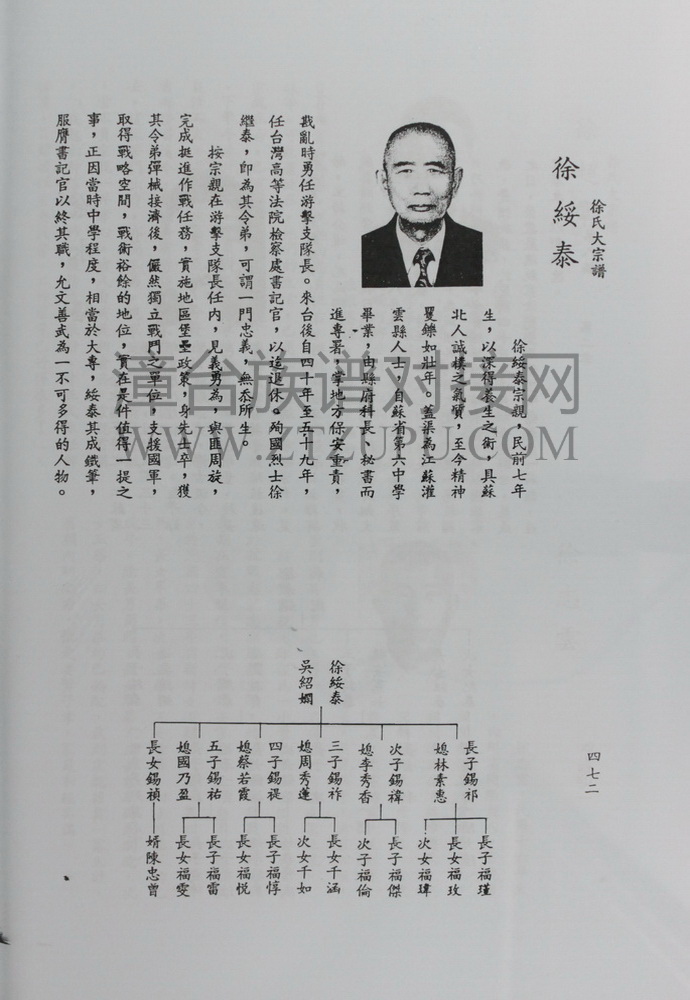 徐氏大宗譜
徐綏泰
徐綏泰宗親，民前七年
生，以深得養生之術，具蘇
北人誠樸之氣質，至今精神
矍鑠如壯年。蓋渠為江蘇灌
雲縣人士，自蘇省第六中學
畢業，由縣府科長、秘書而
進專署，掌地方保安重責，
戡亂時勇任游擊支隊長。來台後自四十年至五十九年，
任台灣高等法院檢察處書記官，以迄退休。殉國烈士徐
繼泰，即為其令弟，可謂一門忠義，無忝所生。
按宗親在游擊支隊長任內，見義勇為，與匪周旋，
完成挺進作戰任務，實施地區堡壘政策，身先士卒，獲
其令弟彈械接濟後，儼然獨立戰鬥之單位，支援國軍，
取得戰略空間，戰術裕餘的地位，實在是件值得一提之
事，正因當時中學程度，相當於大專，綏泰其成鐵筆，
服膺書記官以終其職，允文善武為一不可多得的人物。
四七二
徐綏泰
吳紹嫻
長子錫祁
媳林素惠
次子錫禕
媳李秀香
三子錫祚
媳周秀蓮
四子錫禔
媳蔡若霞
五子錫祐
媳國乃盈
長女錫禎
長子福瑾
長女福玫
次女福瑋
長子福傑
次子福倫
長女千涵
次女千如
長子福惇
長女福悅
長子福雷
長女福雯
婿陳忠曾
章台族谱对接网
WWW.ZTZUPU.COM